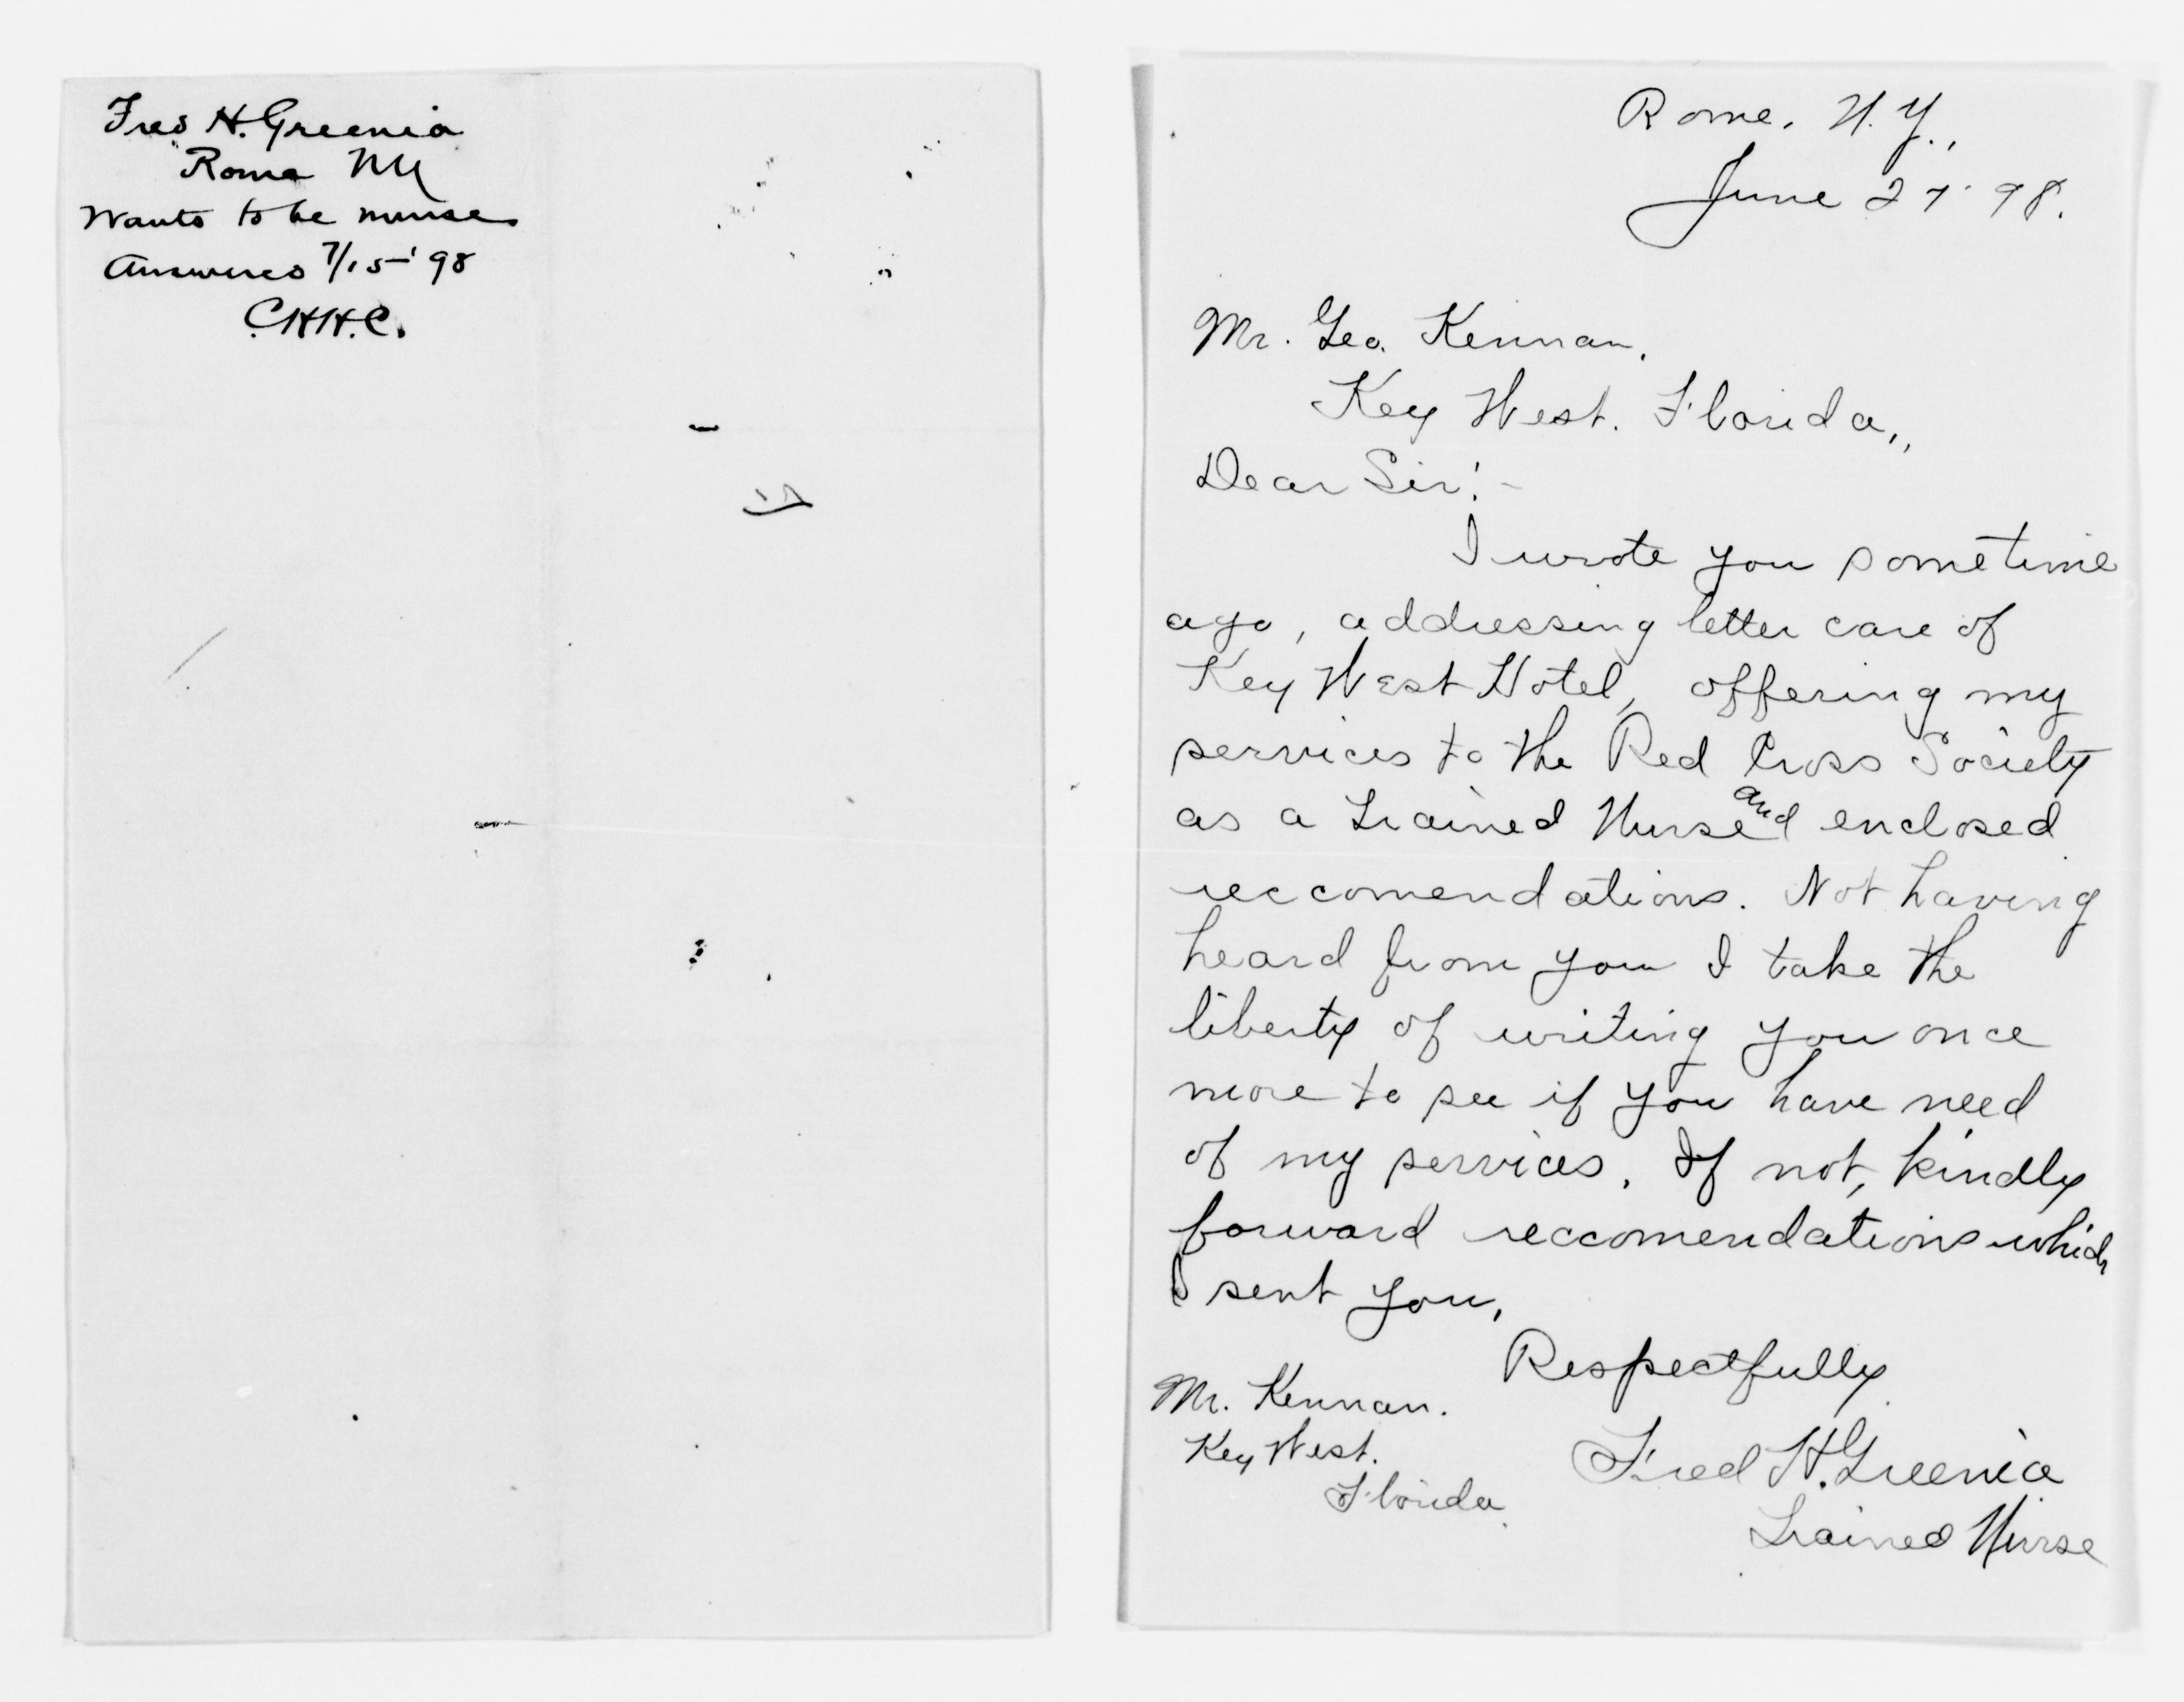 Fred H. Greenia
Rome NY
Wants to be nurse
Answered 7/15-'98
C.H.H.C.
Rome, N.Y.,
June 27 '98.
Mr. Geo. Kennan,
Key West. Florida,,
Dear Sir:-
I wrote you sometime
ago, addressing letter care of
Key West Hotel, offering my
services to the Red Cross Society
as a Trained Nurse and enclosed
reccomendations. Not having
heard from you I take the
liberty of writing you once
more to see if you have need
of my services. If not, kindly
forward reccomendations which
I sent you,
Respectfully
Mr. Kennan.
Key West.
Florida.
Fred H. Greenia
Trained Nurse